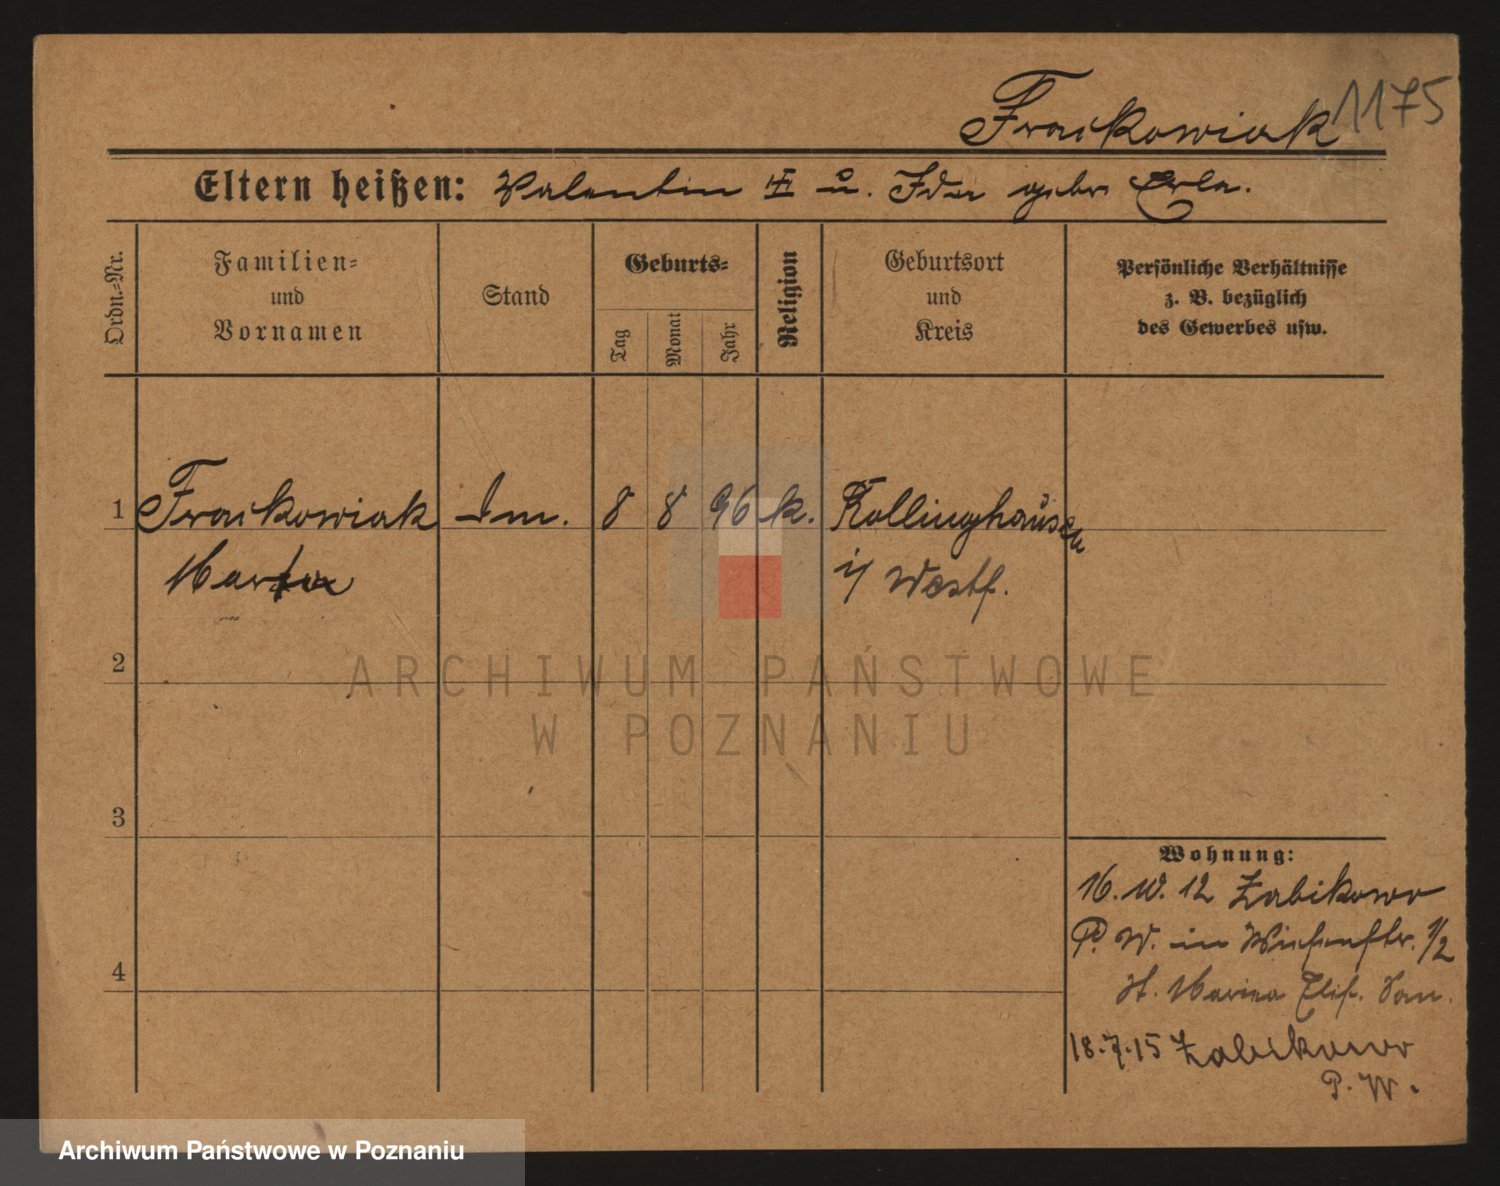 Frackowiak 1175
Eltern heißen: Valentin u. Ida gebr Erle.
Ordn.=Nr.
Familien=
und
Vornamen
Stand
Geburts=
Tag
Monat
Jahr
Religion
Geburtsort
und
Kreis
Persönliche Verhältnisse
z. B. bezüglich
des Gewerbes usw.
1 Frackowiak 8 8 96 k. Rollinghausen
i/ Westf.
2
3
4
Wohnung:
16. 12 Zabikowo
P. W. in Wiesenstr. 1/2
18.7.15 Zabikowo
P. W.
ARCHIWUM PAŃSTWOWE
W POZNANIU
Archiwum Państwowe w Poznaniu